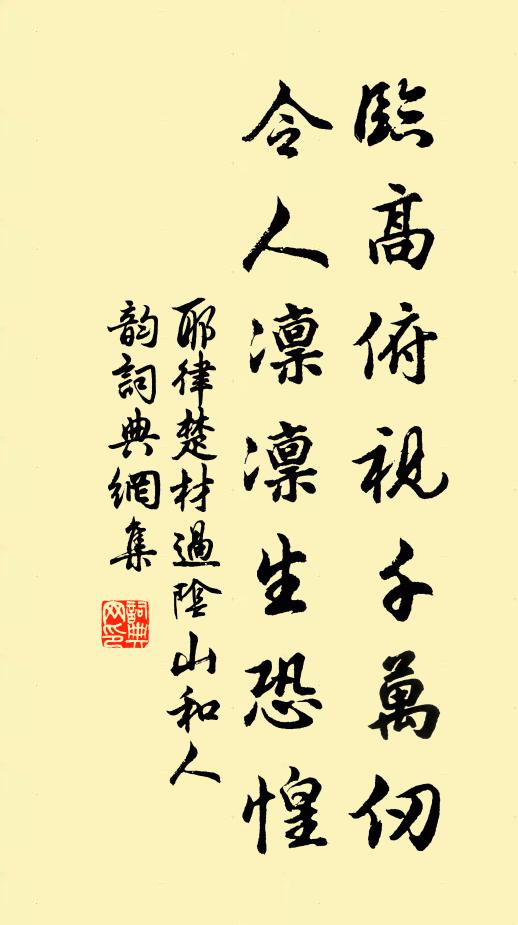 臨高俯視千萬仞
令人凜凜生恐惶
耶律楚材過陰山和人
韵詞典網集
詞典
网印